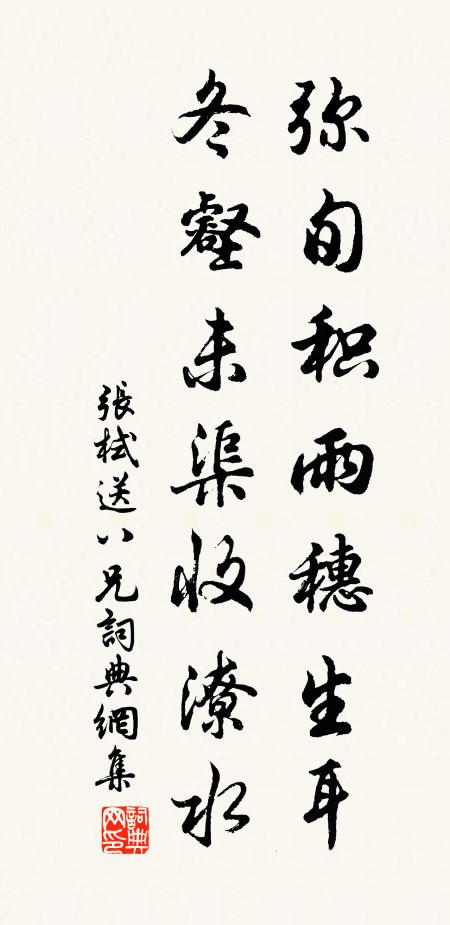 弥旬积雨穗生耳
冬壑未渠收潦水
張栻送八兄詞典網集
詞典網印